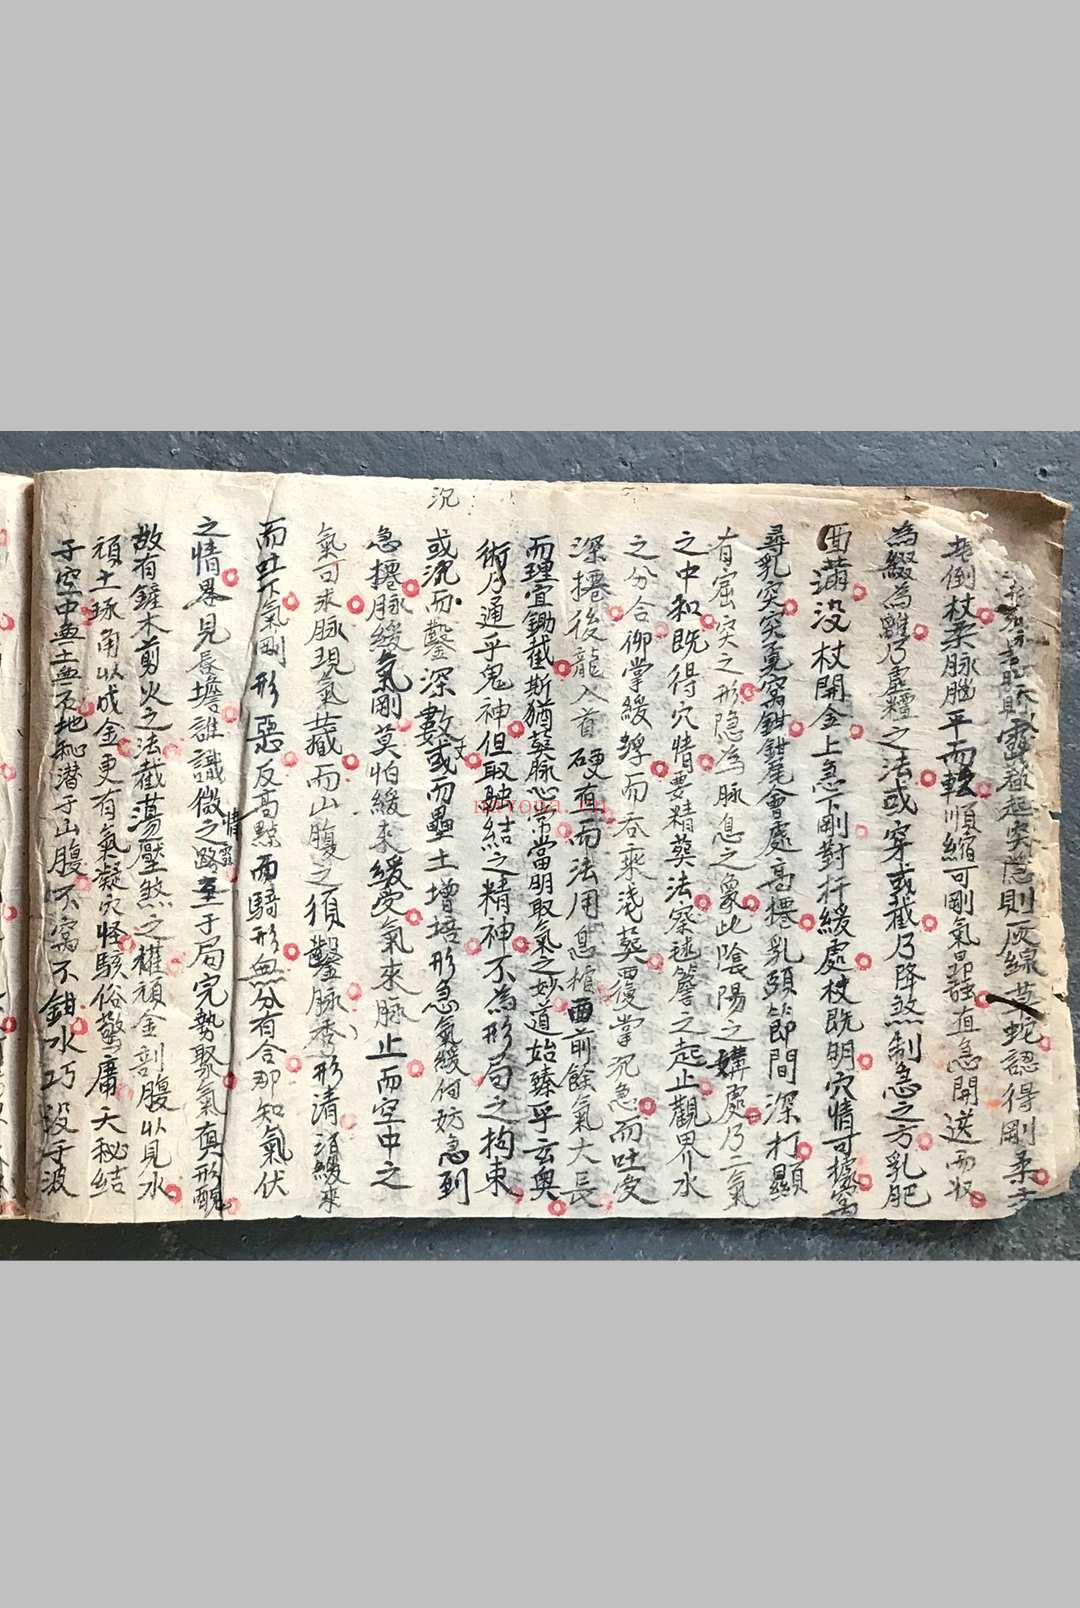 露殺起突隱則灰線草蛇認得剛柔
倒杖柔脉腦平而軟順縮可剛氣昻強直急開送而收
為綴為離乃虛粘之法或穿或截乃降煞制急之方乳肥
面滿没杖開金上急下剛對扦緩處杖既明穴情可據窩
尋乳突突覔窩鉗鉗尾會處高捲乳頭節間深打顯
有窟突之形隐為脉息之象此陰陽之媾處乃二氣
之中和既得穴情要精葬法察毬簷之起止觀界水
之分合仰掌緩弹而吞乘浅葬覆掌沉急而吐受
深捲後龍入首硬直而法用 前餘氣大長
而理宜鋤截斯猶葬脉心常當明取氣之妙道始臻乎玄奥
術乃通乎鬼神但取融結之精神不為形局之拘束
沉
或沉而鑿深數或而壘土增培形急氣緩何妨急到
急捲脉緩氣剛莫怕緩來緩受氣來脉止而空中之
氣可求脉現氣藏而山腹之須鑿脉 形清 緩來
而 下氣剛形惡反高 而騎形無分有合那知氣伏
之情界見唇 誰識微之 于局完勢聚氣真形醜
故有鏟木剪火之法截蕩壓煞之權頑金剖腹以見水
頑土琢角以成金更有氣凝穴怪駭俗驚庸天秘結
于空中 土 地秘潜于山腹不窩不鉗水巧没于波
nayona.cn